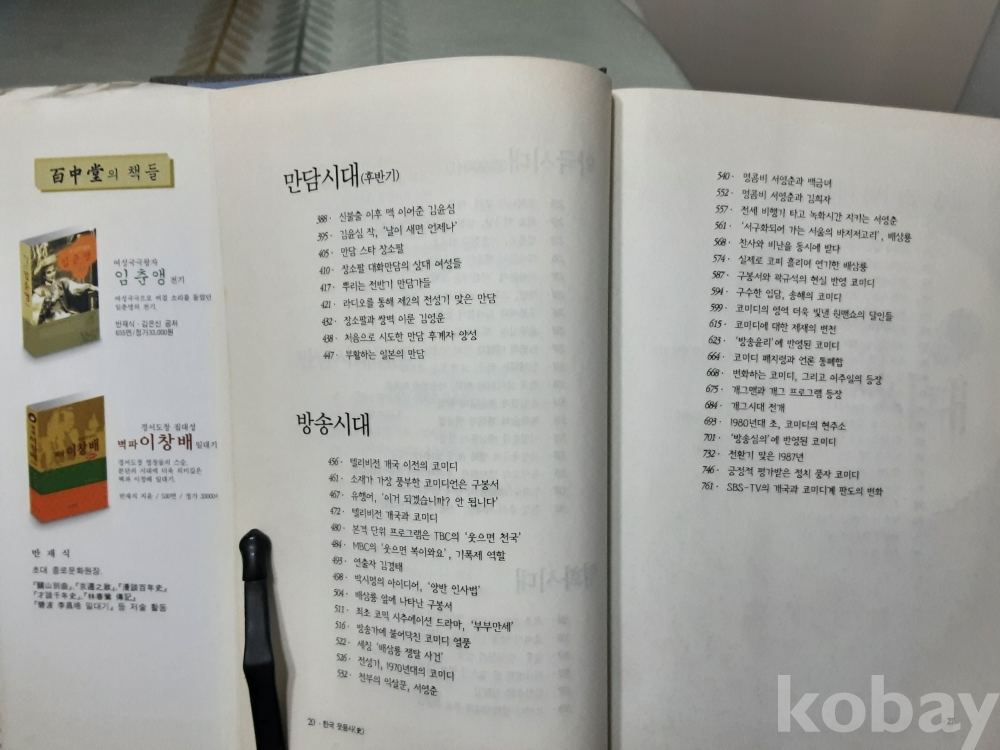 百中堂의 책들
여성국극왕자
임춘앵 전기
여성국극으로 여걸 소리를 들었던
임춘앵의 전기.
반재식 · 김은신 공저
655면/정가33,000원
경서도창 집대성
벽파 이창배 일대기
경서도창 명창들의 스승,
분단의 시대에 더욱 의미깊은
벽파 이창배 일대기.
반재식 지음 / 530면 / 정가 33000원
반 재 식
초대 종로문화원장.
등 저술 활동
만담시대(후반기)
388· 신불출 이후 맥 이어준 김윤심
395· 김윤심 작, '날이 새면 언제나'
405· 만담 스타 장소팔
410· 장소팔 대화만담의 상대 여성들
417· 뿌리는 전반기 만담가들
421· 라디오를 통해 제2의 전성기 맞은 만담
432· 장소팔과 쌍벽 이룬 김영운
438· 처음으로 시도한 만담 후계자 양성
447· 부활하는 일본의 만담
방송시대
456· 텔리비전 개국 이전의 코미디
461· 소재가 가장 풍부한 코미디언은 구봉서
467· 유행어, '이거 되겠습니까? 안 됩니다'
472· 텔리비전 개국과 코미디
480· 본격 단위 프로그램은 TBC의 '웃으면 천국'
484· MBC의 '웃으면 복이와요', 기폭제 역할
493· 연출자 김경태
498· 박시명의 아이디어, '양반 인사법'
504· 배삼룡 앞에 나타난 구봉서
511· 최초 코믹 시추에이션 드라마, '부부만세'
516· 방송가에 불어닥친 코미디 열풍
522· 세칭 '배삼룡 쟁탈 사건'
526· 전성기, 1970년대의 코미디
532· 전부의 익살꾼, 서영춘
20 · 한국 웃음사(史)
540· 명콤비 서영춘과 백금녀
552· 명콤비 서영춘과 김희자
557· 전세 비행기 타고 녹화시간 지키는 서영춘
561· '서구화되어 가는 서울의 바지저고리', 배삼룡
568· 찬사와 비난을 동시에 받다
574· 실제로 코피 흘리며 연기한 배삼룡
587· 구봉서와 곽규석의 현실 반영 코미디
594· 구수한 입담, 송해의 코미디
599· 코미디의 영역 더욱 빛낸 원맨쇼의 달인들
615· 코미디에 대한 제재의 변천
623· '방송윤리'에 반영된 코미디
664· 코미디 폐지령과 언론 통폐합
668· 변화하는 코미디, 그리고 이주일의 등장
675· 개그맨과 개그 프로그램 등장
684· 개그시대 전개
693· 1980년대 초, 코미디의 현주소
701· '방송심의'에 반영된 코미디
732· 전환기 맞은 1987년
746· 긍정적 평가받은 정치 풍자 코미디
761· SBS-TV의 개국과 코미디계 판도의 변화
kobay